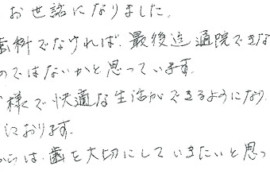 お世話になりました。
歯科でなければ、最後迄通院できな
のではないかと思っています。
様で快適な生活ができるようになり
ております。
からは、歯を大切にしていきたいと思っ